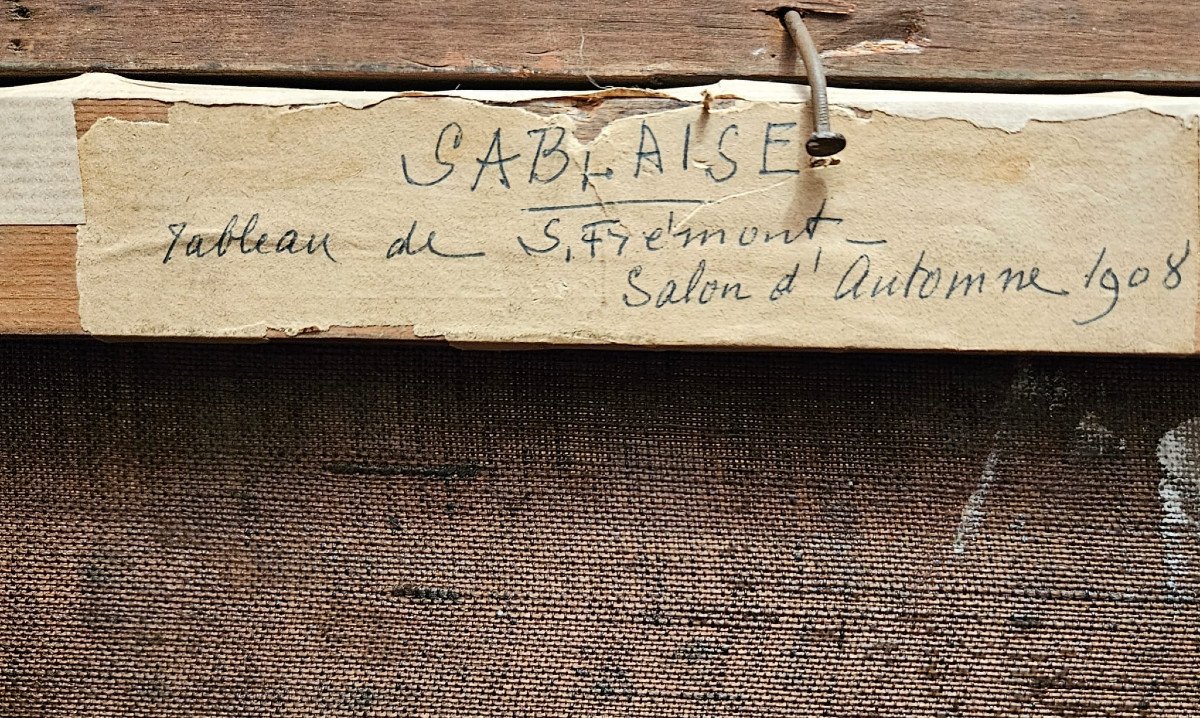 SABLAISE
Tableau de S. Frémont —
Salon d'Automne 1908